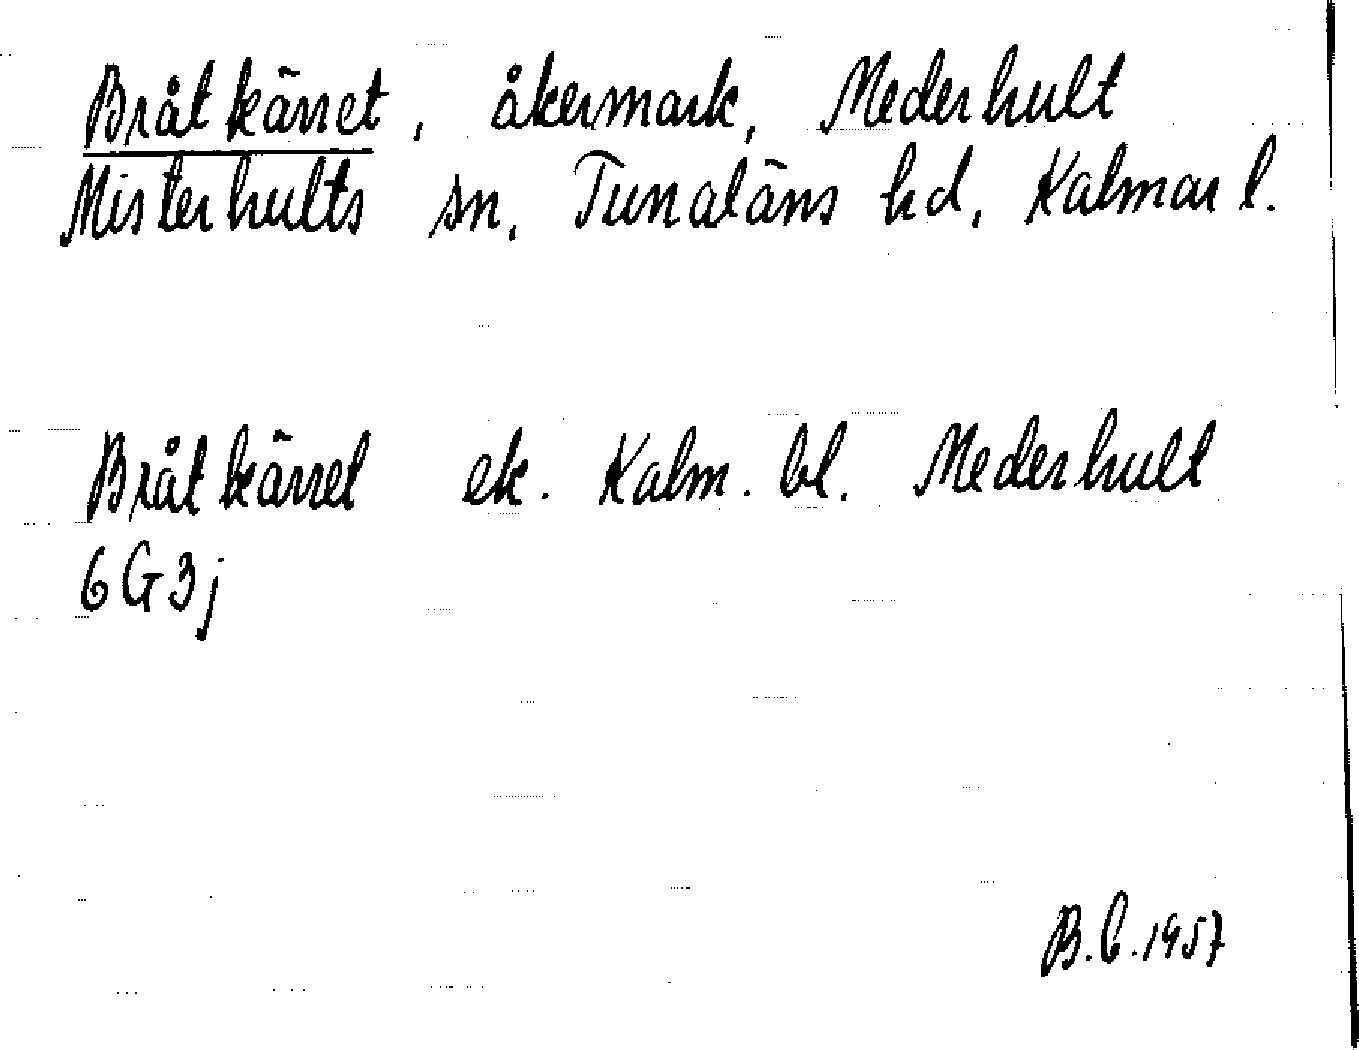 Bråtkärret, åkermark, Mederhult
Misterhults sn, Tunaläns hd, Kalmar l.
Bråtkärret ek. Kalm. bl. Mederhult
6G3j
B.C.1957